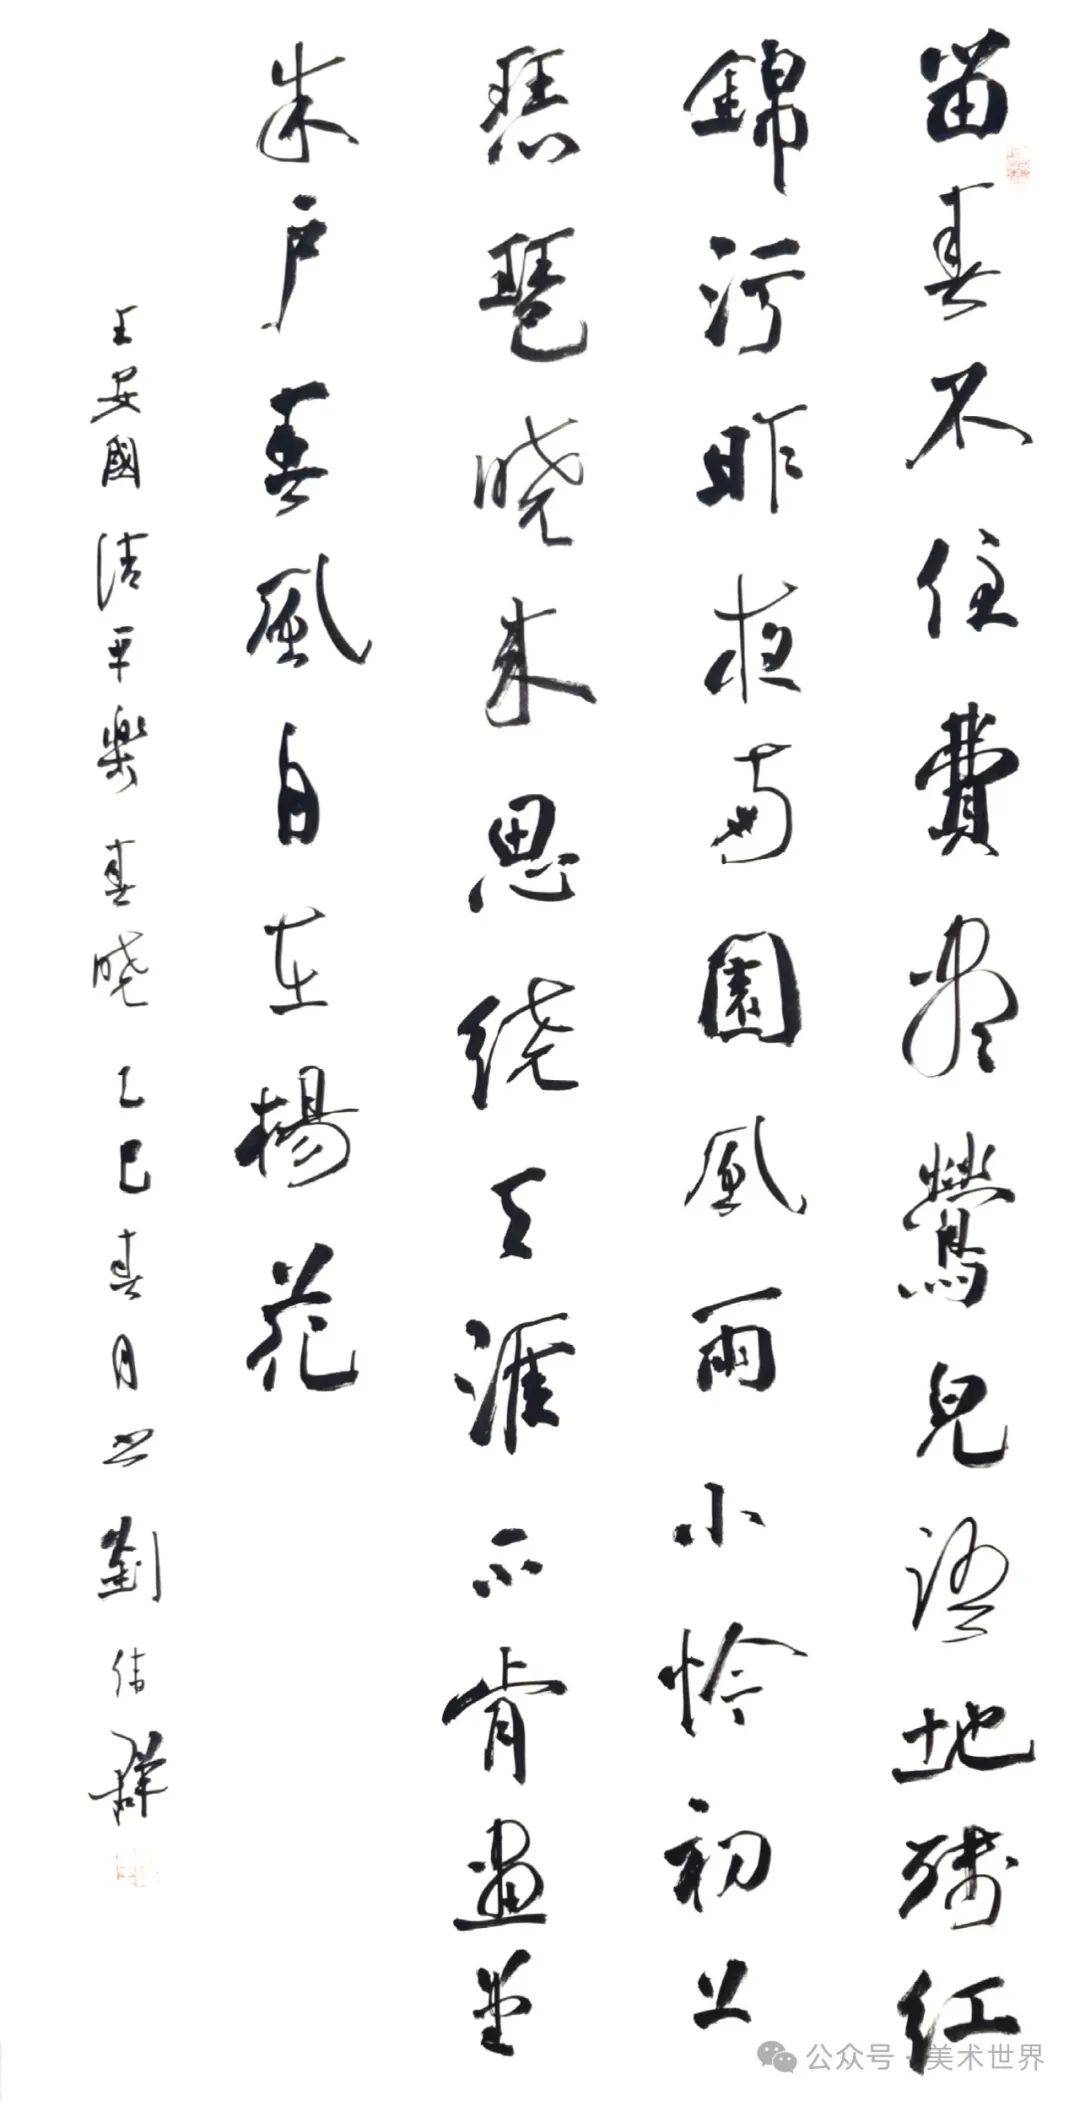 留春不住費盡鶯兒語地殘紅
錦污昨夜南園風雨小怜初上
琵琶曉来思绕天涯不肯畫堂
朱户春風自在楊花
王安國清平樂春曉乙巳春月书劉偉群
公众号·美术世界